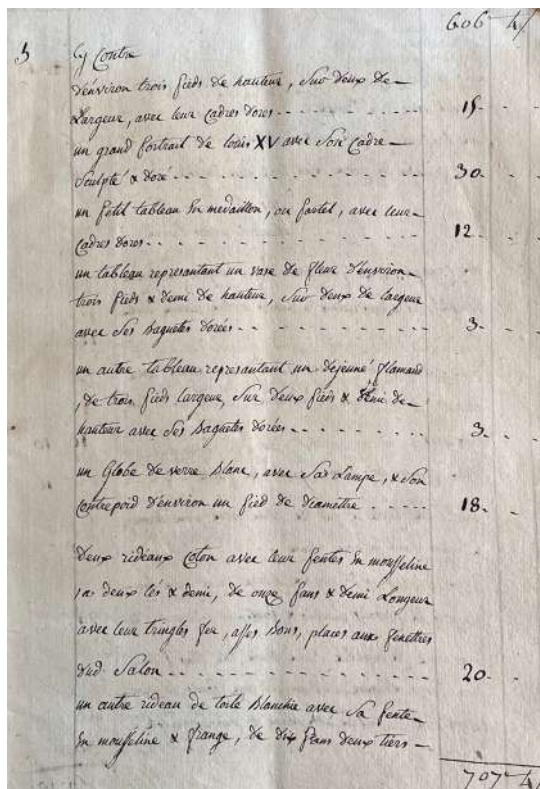 606 - 4/
3 Cy Contre
d'énviron trois pieds de hauteur, sur deux de
Largeur, avec leur Cadres dorés - - - 15.
un grand portrait de louis XV avec Son Cadre
Sculpté & doré - - - 30.
un petit tableau En medaillon, ou pastel, avec leur
Cadres dorés - - - 12.
un tableau represantant un vase de fleur d'énviron
trois pieds & demi de hauteur, sur deux de largeur
avec Ses baguetes dorées - - - 3.
un autre tableau represantant un dejeuné flamand
, de trois pieds largeur, Sur deux pieds & demi de
hauteur avec Ses baguetes dorées - - - 3.
un Globe de verre blanc, avec Sa Lampe, & Son
Contrepoid d'environ un pied de diamettre - - - 18.
Deux rideaux Coton avec leur pentes En mousseline
a deux lés & demi, de onze pans & demi Longeur
avec leur tringles fer, assés bons, placés aux fenettres
dud. Salon - - - 20.
un autre rideau de toile blanchie avec Sa pente
En mousseline & frange, de dix pans deux tiers
707 - 4/